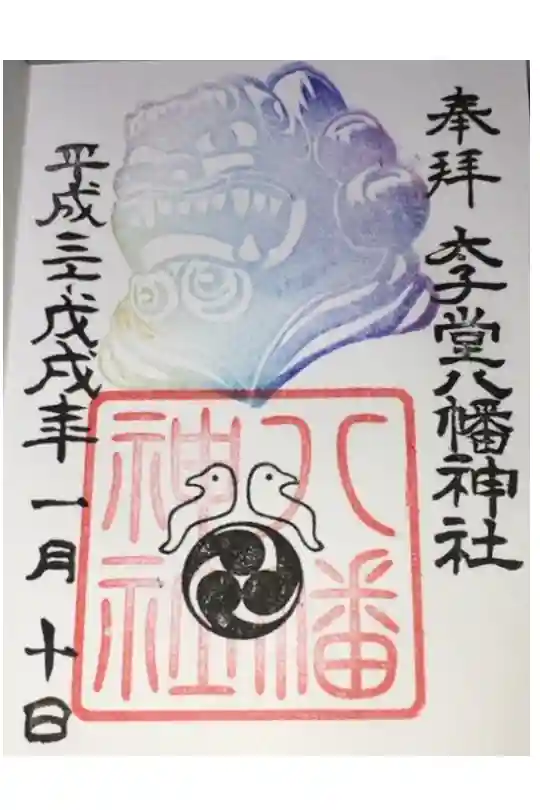 奉拝
太子堂八幡神社
八幡
神社
平成三十戊戌年 一月 十日